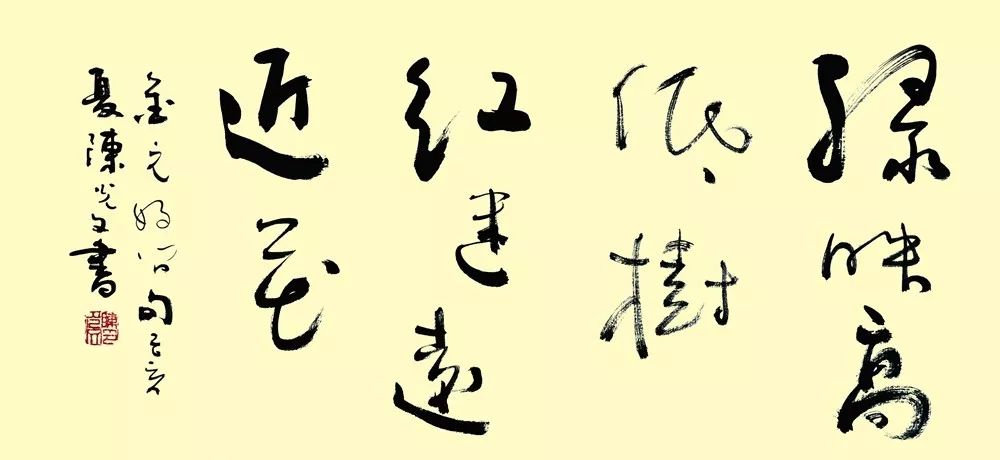 綠映高
低樹
紅迷遠
近花
金元好問句己亥
夏陳光文書